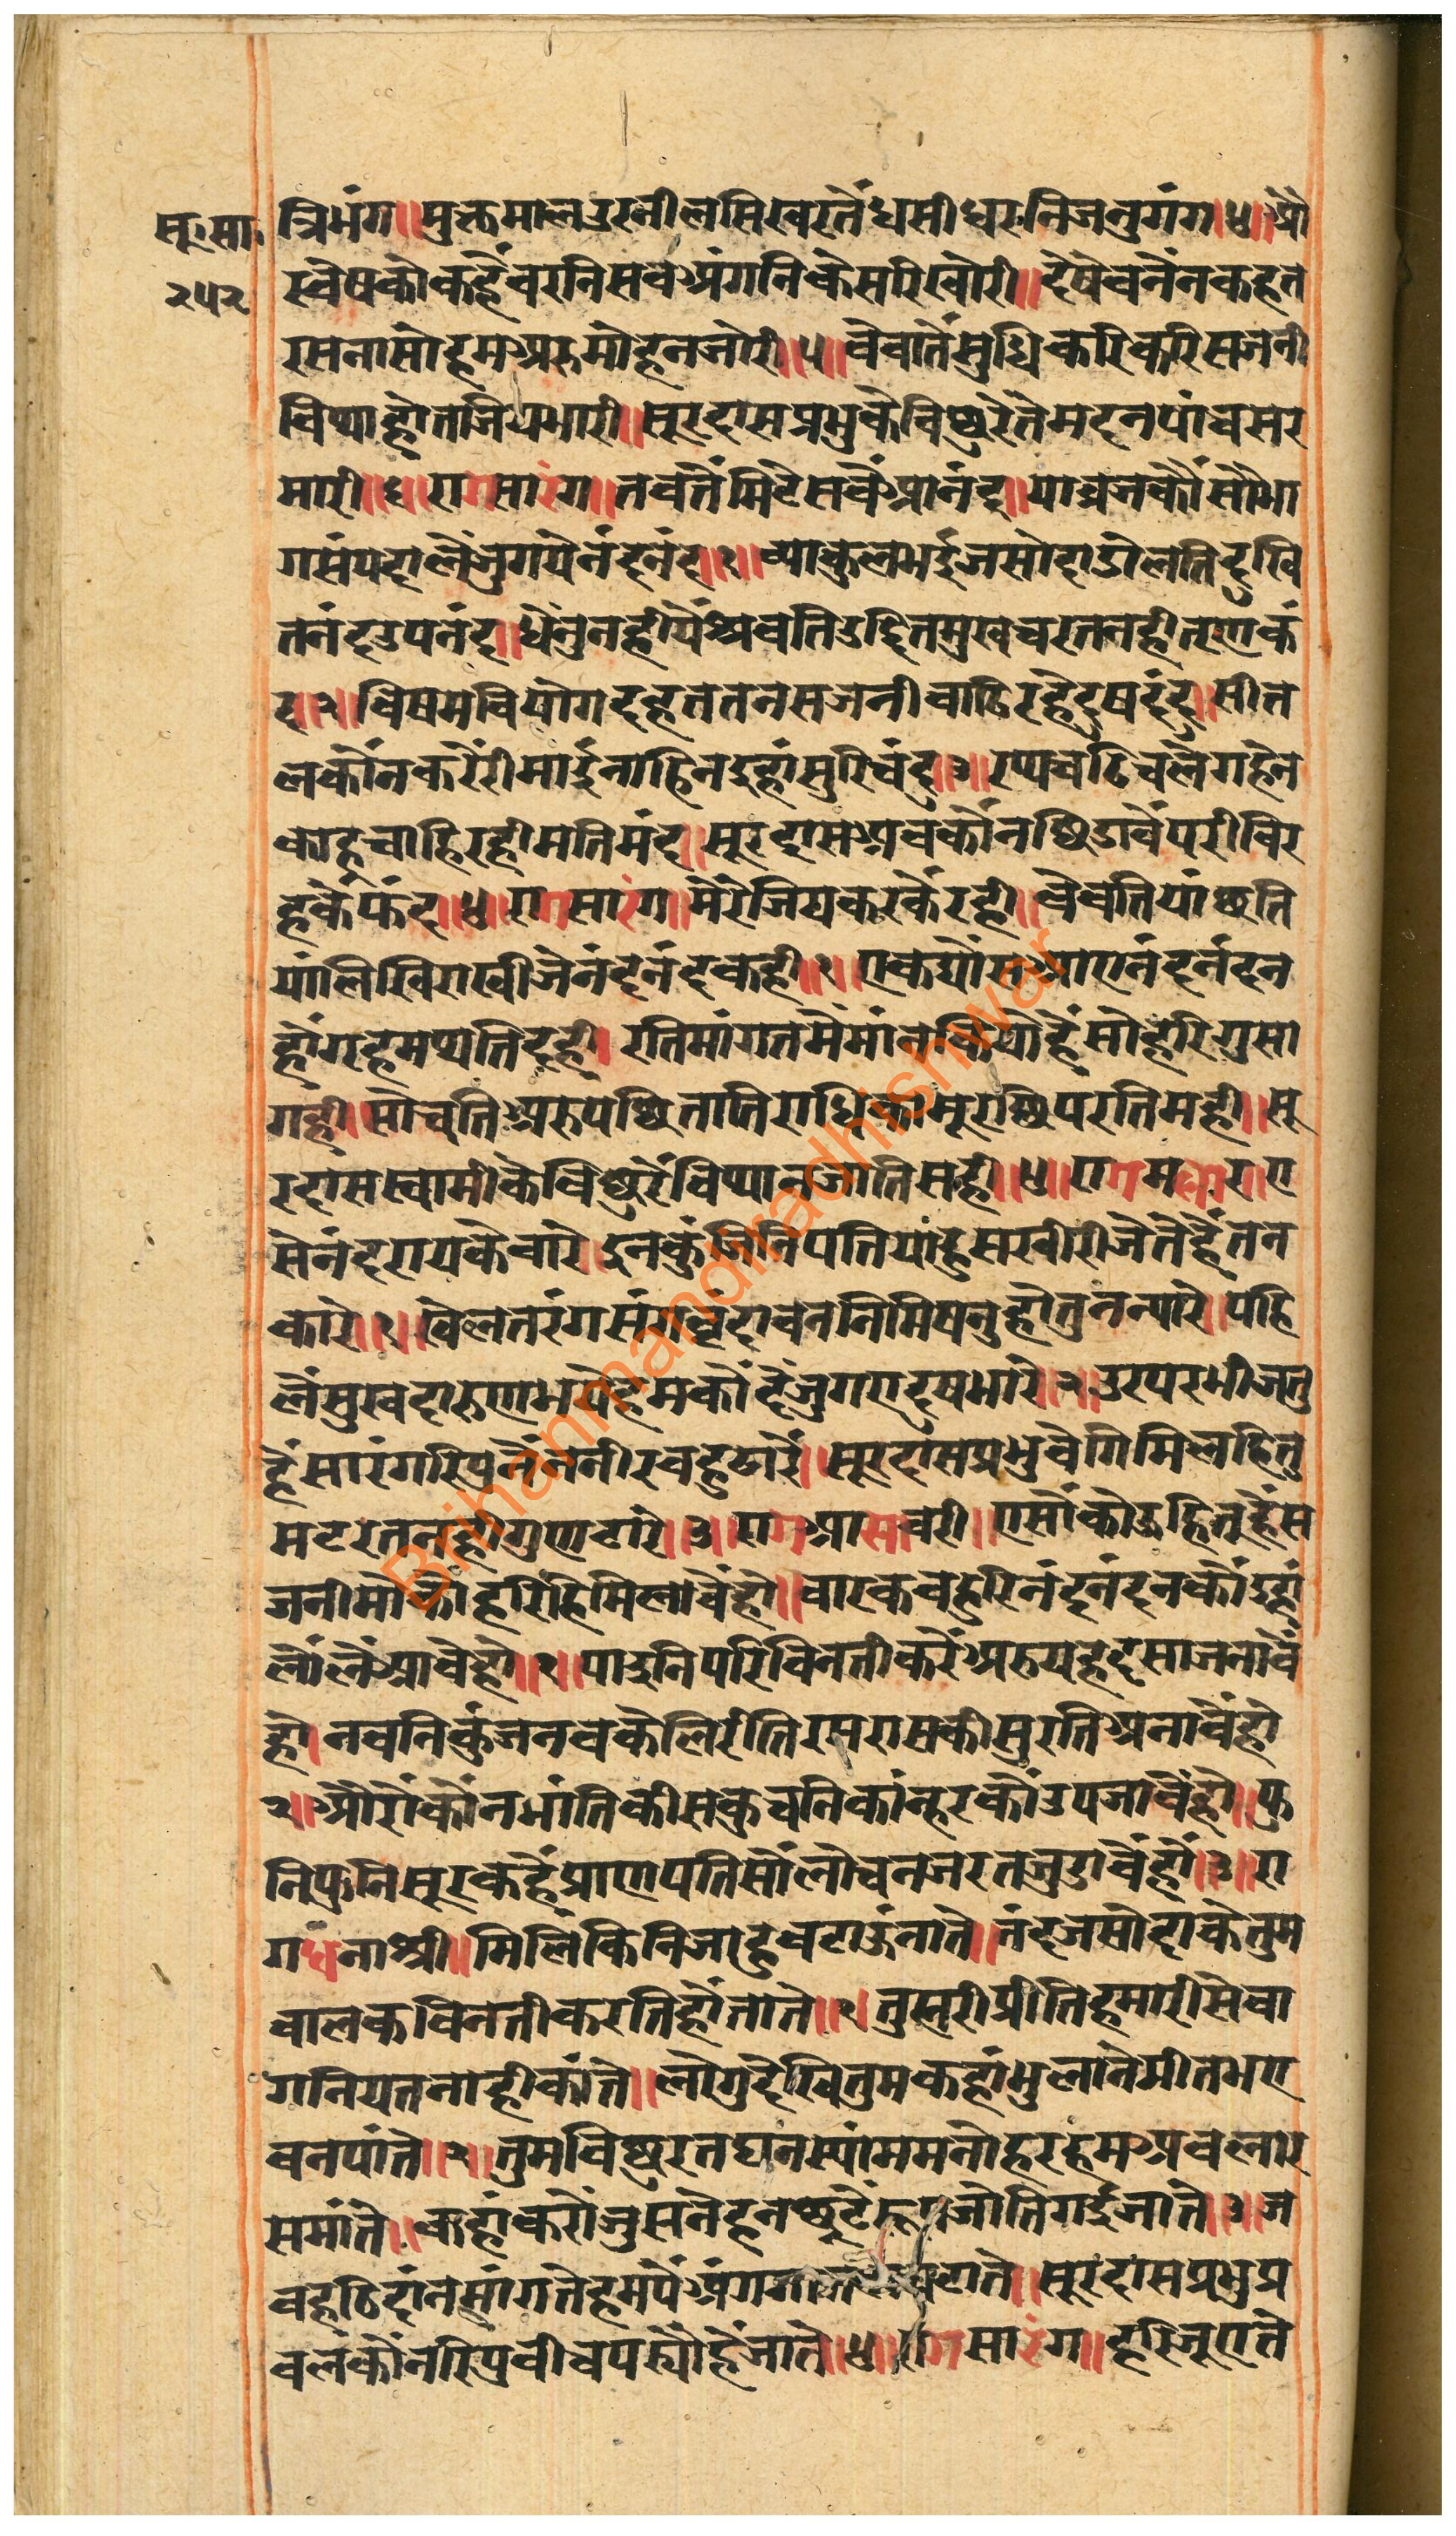 सू॰सा॰
२५२
त्रिभंग॥मुक्तमालउरनीलसिखरतेंधसीधरनिजनुगंग॥४॥औ
रवेषकोकहैवरनिसवअंगनिकेसरिखोरी॥देषेवनेंनकहत
रसनासोहमअरुमोहनजोरी॥५॥वेवातेंसुधिकरिकरिसजनी
विथाहोतजियभारी॥सूरदासप्रभुकेविछुरेतेंमदनपांचसर
मारी॥६॥रागसारंग॥तवतेंमिटेसवेंआनंद॥याव्रजकौंसौभा
गसंपदालेंजुगयेनंदनंद॥१॥व्याकुलभईजसोदाडोलतिदुखि
तनंदउपनंद॥धेंनुनहीपेंश्रवतिउदितमुखचरतनहीतृणकं
द॥२॥विषमवियोगदहततनसजनीवाढिरहेदुषदंद॥सीत
लकोंनकरेंरीमाईनाहिनइहांसुरिचंद॥३॥रथचढिचलेगहेन
काहूचाहिरहीमतिमंद॥सूरदासअवकोंनछिडावेंपरीविर
हकेंफंद॥४॥रागसारंग॥मेंरेंजियकरकेंरही॥वेवतियांछति
यांलिखिराखीजेनंदनंदकही॥१॥एकद्यौंसआएनंदनंदन
होंगहमथतिदही॥रतिमांगतमेंमांनकियोहेंसोहरिगुसा
गही॥सोचतिअरुपछितातिराधिकामूराछिपरतिमही॥सू
रदासस्वामीकेविछुरेंविथानजातिसही॥४॥रागमलार॥ए
सेनंदरायकेवारे॥इनकुंजनिपतियांहुसखीरीजेतेहैंतन
कारे॥१॥खेलतरंगसंगवृंदावननिमिषनुहोतुनन्यारे॥पहि
लेंसुखदारुणभयेहमकोंदेंजुगएदुषभारे॥२॥उरपरभीजतु
हेंसारंगरिपुनेंननीरवहुढारें॥सूरदासप्रभुवेगिमिलहितु
मटरतनहीगुणटारे॥३॥रागआसावरी॥एसोंकोऊहितूहैंस
जनीमोकोंहरिहिमिलावेंहो॥वारकवहुरिनंदनंदनकोंइहां
लोंलेंआवेहो॥१॥पाइनिपरिविनतीकरेंअरुयहदसाजनावें
हो॥नवनिकुंजनवकेलिरीतिरसरासकीसुरतिअनावेंहो
२॥औरोंकोंनभांतिकीसकुचनिकांन्हरकोंउपजावेंहो॥पु
निपुनिसूरकहेंप्राणपतिसोंलोचनजरतजुडावेंहो॥३॥रा
गधनाश्री॥मिलिकिनिजाहुवटाऊंनाते॥नंदजसोदाकेतुम
वालकविनतीकरतिहोंताते॥१॥तुम्हरीप्रीतिहमारीसेवा
गनियतनाहीकांते॥लोगुदेखितुमकहांभुलानेमीतभए
वनपांते॥२॥तुमविछुरतघनस्यांममनोहरहमअवलार
समांते॥कहांकरोंजुसनेहनछूटेंरूपजोतिगईजाते॥३॥ज
वहठिदांनमांगतेहमपेंअंग टाते॥सूरदासप्रभुप्र
वलकोंनरिपुवीचपस्यौहैजाते॥४॥रागसारंग॥हरिजूएते